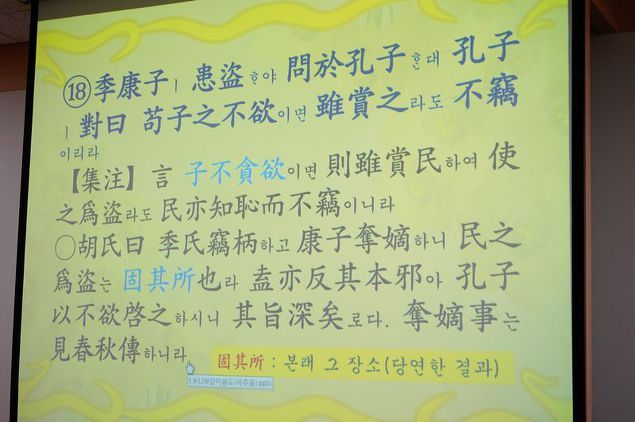 ⑱季康子ㅣ 患盜ᄒᆞ야 問於孔子ᄒᆞᆫ대 孔子
ㅣ 對曰 苟子之不欲이면 雖賞之라도 不竊
이리라
【集注】 言 子不貪欲이면 則雖賞民하여 使
之爲盜라도 民亦知恥而不竊이니라
○胡氏曰 季氏竊柄하고 康子奪嫡하니 民之
爲盜는 固其所也라 盍亦反其本邪아 孔子
以不欲啓之하시니 其旨深矣로다. 奪嫡事는
見春秋傳하니라
固其所 : 본래 그 장소(당연한 결과)